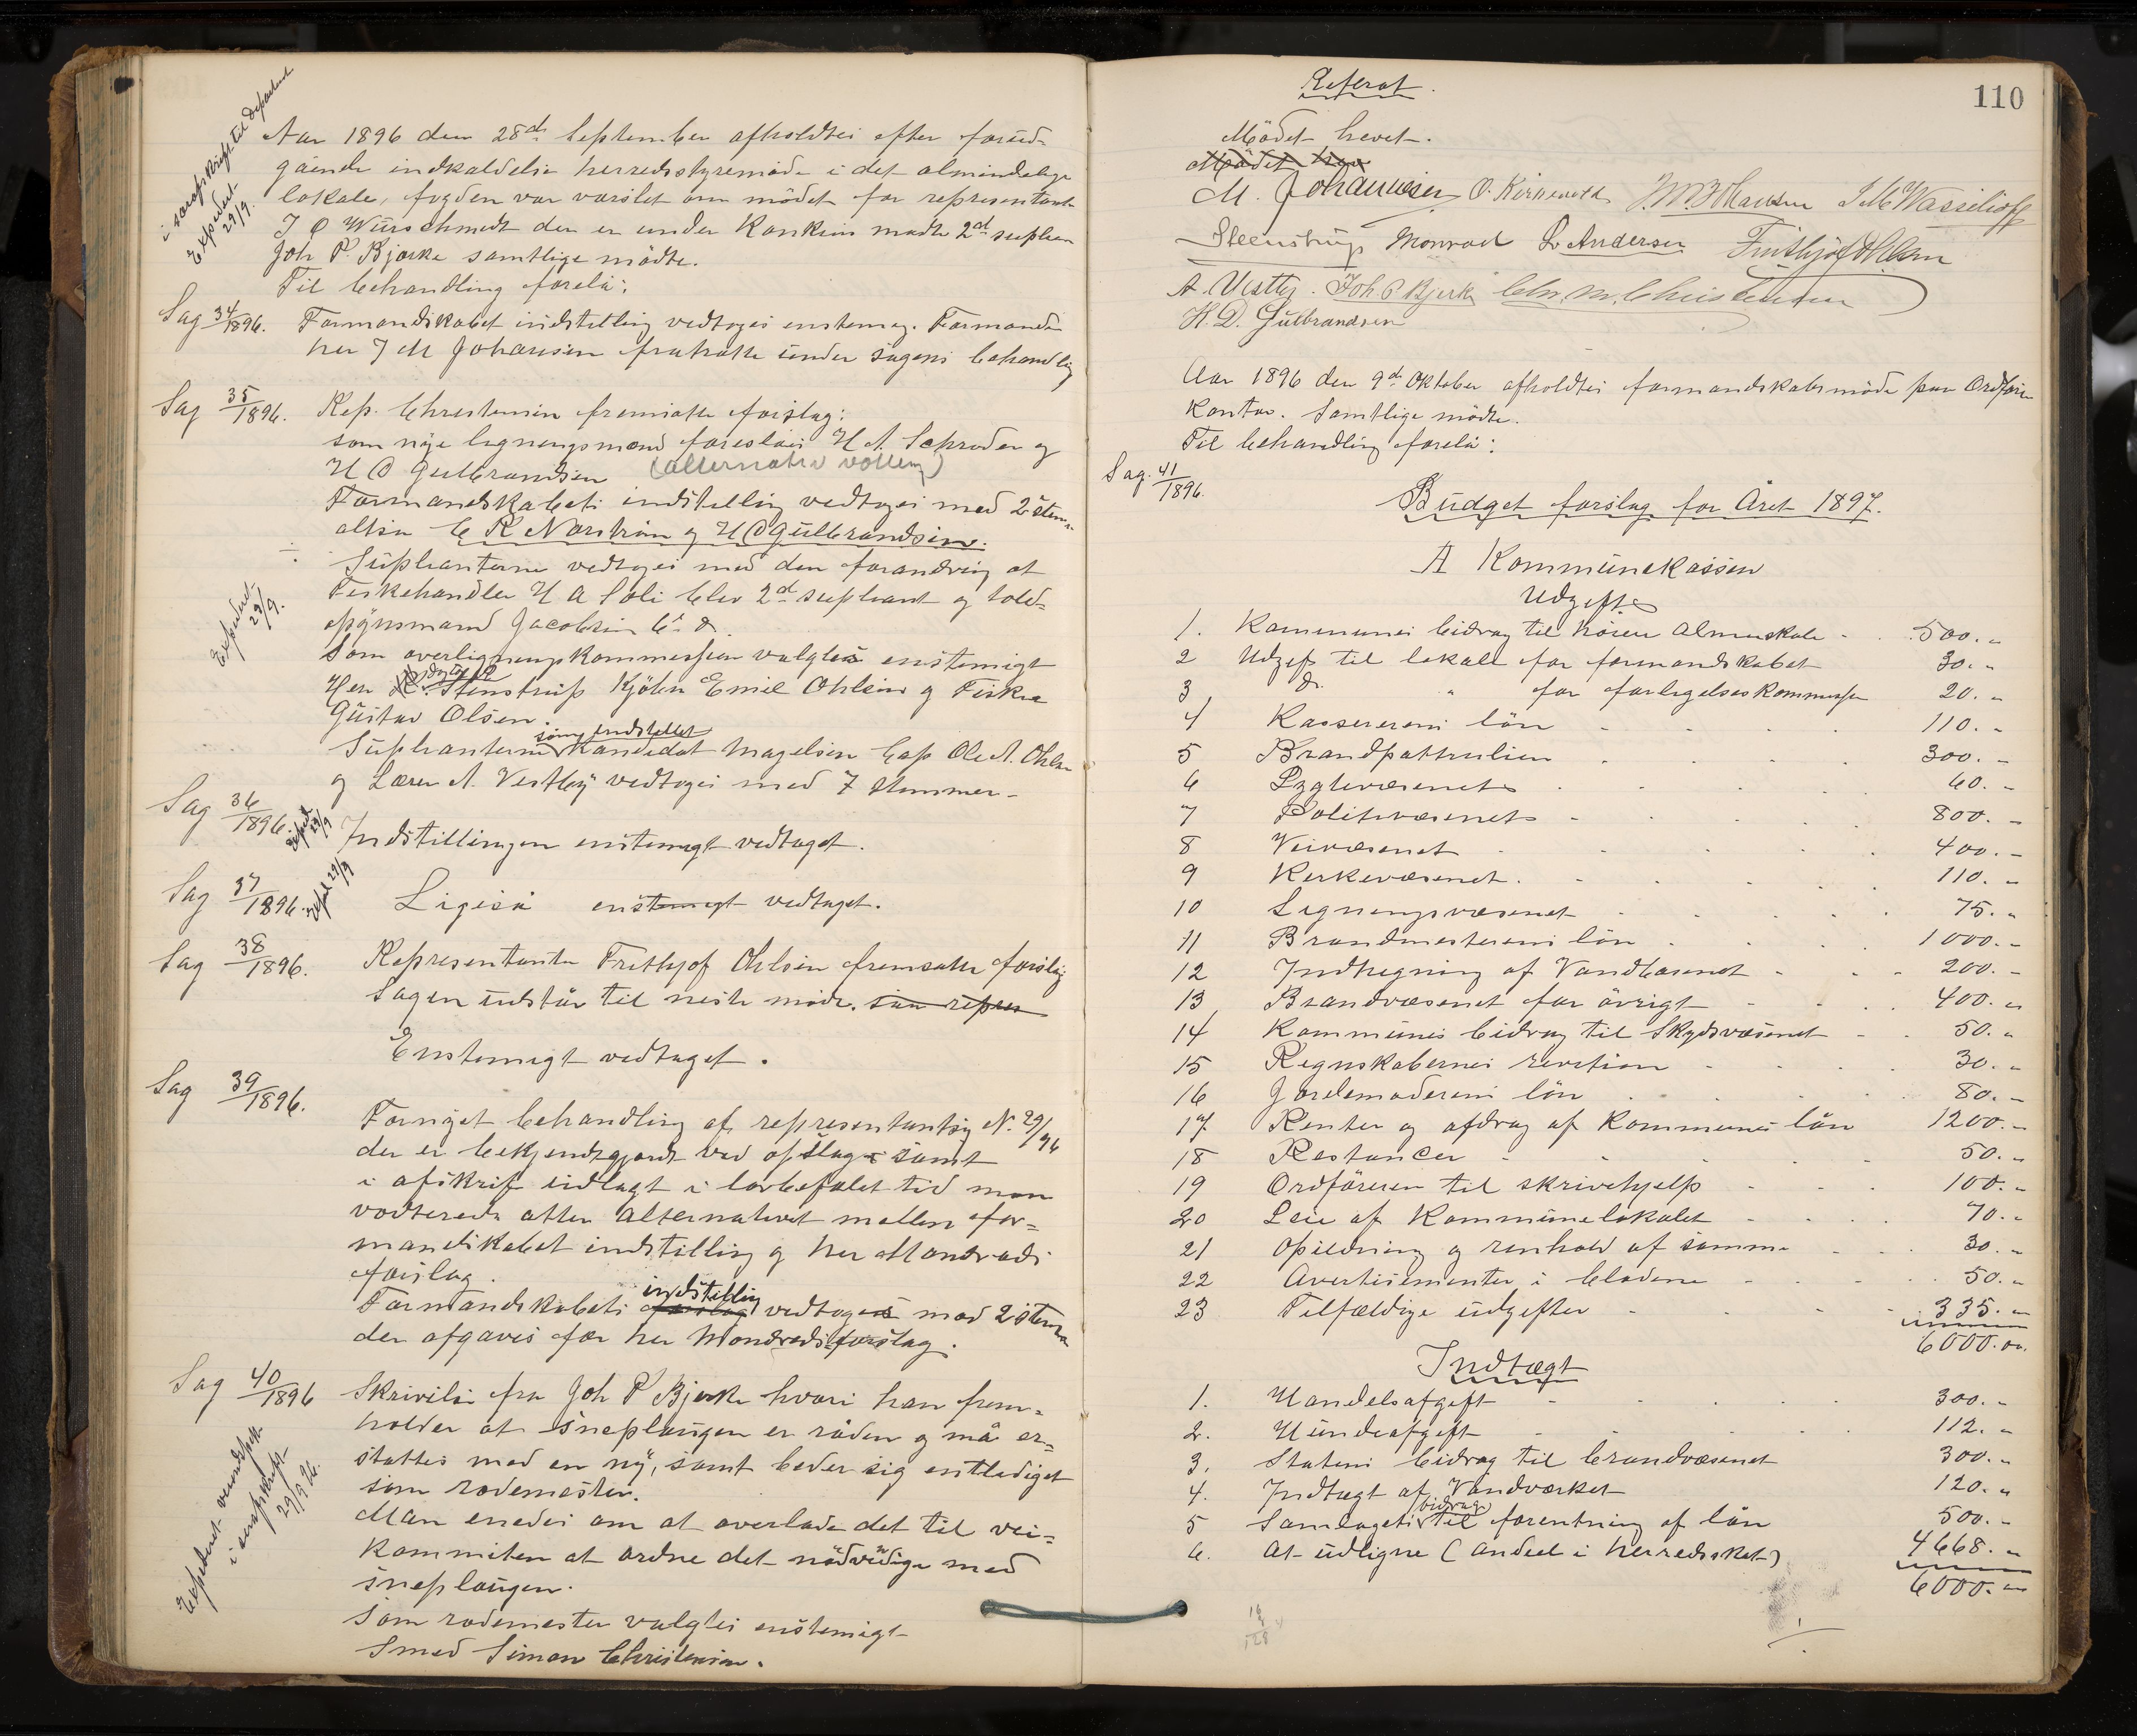 i særafskrift til Depechent
Expedert
29/9.
Aar 1896 den 28de September afholdtes efter forud-
gående indkaldelse herredsstyremøde i det almindelige
lokale, fogden var varslet om mødet for representant
J C Würschmidt der er under Konkurs mødte 2den suplean
Joh P. Bjerke samtlige mødte.
Til behandling forelå:
Sag 34/1896. Formandskabet indstilling vedtoges enstemig. Formanden
her J M Johansen fratrådte under sagens behandling
Sag 35/1896. Rep. Christensen fremsatte forslag:
som nye ligningsmænd foreslåes H A Schrøder og
H D Gulbrandsen (alternativ votering)
Formandskabets indstilling vedtoges med 2 stem
altså C R Norström og H D Gulbrandsen.
Supleanterne vedtoges med den forandring at
Fiskehandler H A Soli blev 2den supleant og told-
opsynsmand Jacobsen 6te do.
Expedert
29/9.
Som overligningskommission valgtes enstemigt
Herr Steenstrup Kjøbm Emil Ohlsen og Fisker
Gustav Olsen.
som indstillet
Supleanterne Kandidat Magelsen Cap Ole A. Ohlsen
og Lærer A. Vestby vedtoges med 7 stemmer-
Sag 36/1896. Exped 29/9 Indstillingen enstemigt vedtaget.
Sag 37/1896. Exped 29/9 Ligeså enstemigt vedtaget.
Sag 38/1896. Representanten Frithjof Ohlsen fremsatte forslag
Sagen udstår til neste møde. som repres
Enstemigt vedtaget.
Sag 39/1896.
Fornyet behandling af representantsag N. 29/96
der er bekjendtgjordt ved opslag samt
i afskrift udlagt i lovbefalet tid man
voterede atter alternativt mellem for=
mandskabet indstilling og her Monrads
forslag.
indstilling
Formandskabets forslag vedtoges mod 2 stemmer
der afgaves for her Monrads forslag.
Sag 40/1896 Skrivelse fra Joh P Bjerke hvori han frem=
holder at sneplougen er råden og må er=
stattes med en ny, samt beder sig entlediget
som rodemester.
Man enedes om at overlade det til vei=
kommiteen at ordne det nødvendige med
sneplougen.
Som rodemester valgtes enstemigt
Smed Simon Christensen.
Expedert
i særafskrift
29/9 96.
110
Referat.
Mødet hevet.
Mødet hev
M. Johannesen O. Kirkevold J. M. Wassilioff
Steenstrup Monrad L. Andersen Frithjof Ohlsen
A. Vestby. Joh. P. Bjerke Chr. M. Christensen
H. D. Gulbrandsen
Aar 1896 den 9de Oktober afholdtes formandskabsmøde paa Ordføre
Kontor. Samtlige mødte.
Til behandling forelå:
Sag. 41/1896.
Budget forslag for Året 1897.
A Kommunekassen
Udgift
1. Kommunes bidrag til høiere Almueskole 500. "
2 Udgift til lokale for formandskabet 30. "
3 do. " for forligelseskommission 20. "
4 Kassererens løn 110. "
5 Brandpatrulien 300. "
6 Lygtevæsenet 60. "
7 Politivæsenet 800. "
8 Veivæsenet 400. "
9 Kirkevæsenet. 110. "
10 Ligningsvæsenet 75. "
11 Brandmesterens løn 1000. "
12 Indhegning af Vandbasinet 200. "
13 Brandvæsenet for øvrigt 400. "
14 Kommunes bidrag til Skydsvæsenet 50. "
15 Regnskabernes revition 30. "
16 Jordemoderens løn 80. "
17 Renter og afdrag af Kommunes lån 1200. "
18 Restancer 50. "
19 Ordføreren til skrivehjelp 100. "
20 Leie af Kommunelokalet 70. "
21 Opildning og renhold af samme 30. "
22 Avertisementer i bladene 50. "
23 Tilfældige udgifter 335. "
6000.00.
Indtægt
1. Handelsafgift 300. "
2. Hundeafgift 112. "
3. Statens bidrag til brandvæsenet 300. "
4. Indtægt af Vandværket 120. "
bidrag
5 Samlagets til forentning af lån 500. "
6. At udligne (andeel i herredsskat) 4668. "
6000. "
16
128